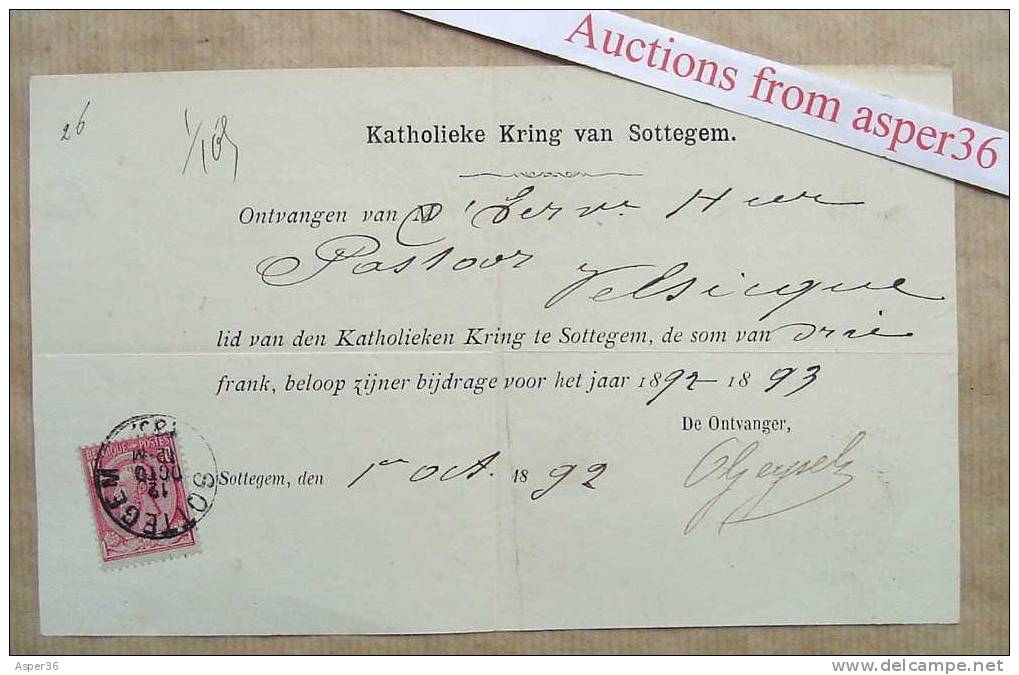 Auctions from asper36
26
Katholieke Kring van Sottegem.
Ontvangen van d'Eerw. Heer
Pastoor Velsicque
lid van den Katholieken Kring te Sottegem, de som van drie
frank, beloop zijner bijdrage voor het jaar 1892-1893
De Ontvanger,
Sottegem, den 1en Oct. 1892
BELGIQUE POSTES
SOTTEGEM
12
OCTO
12-M
Asper36
www.delcampe.net